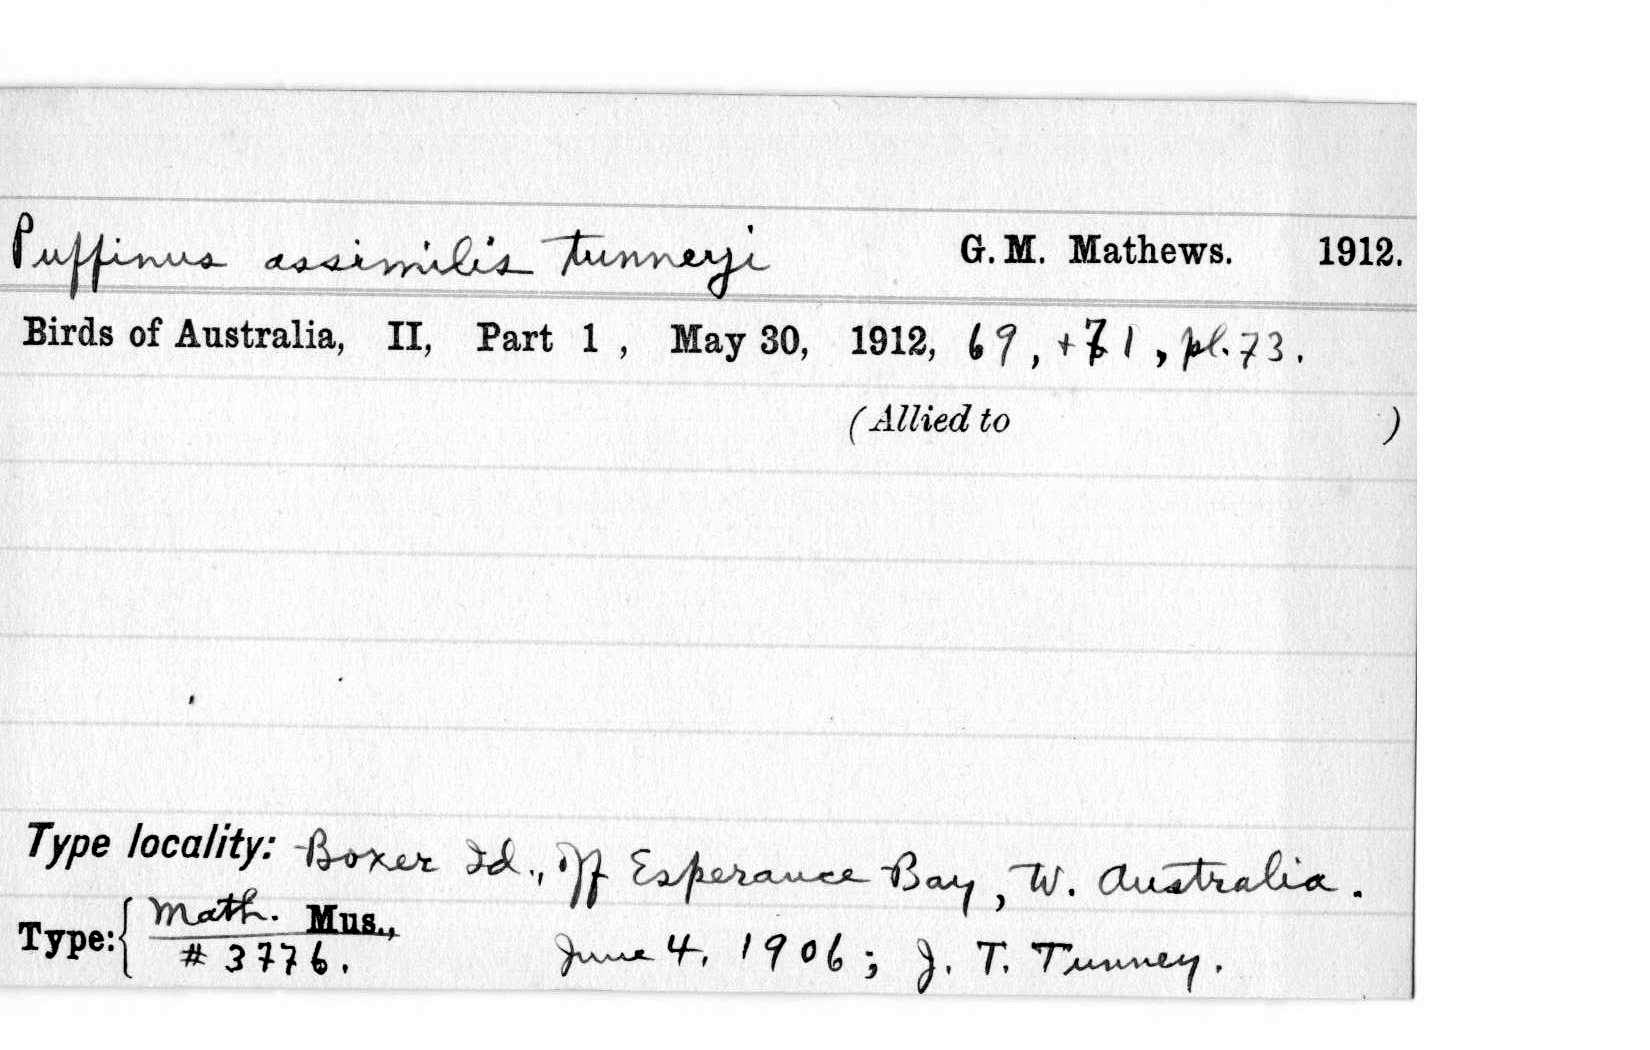 Puffinus assimilis tunneyi G. M. Mathews. 1912.
Birds of Australia, II, Part 1, May 30, 1912, 69, +71, pl. 73.
(Allied to )
Type locality: Boxer Id., off Esperance Bay, W. Australia.
Type: { Math. Mus.,
# 3776. June 4, 1906; J. T. Tunney.